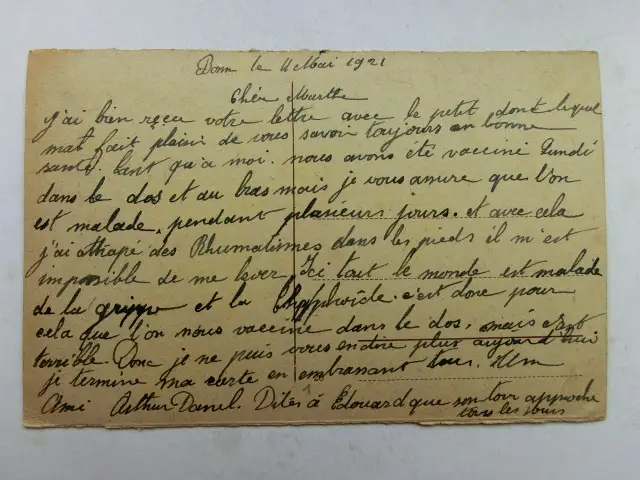 le 11 Mai 1921
Chère Marthe
j'ai bien reçu votre lettre avec le petit dont lequel
mat fait plaisir de vous savoir toujours en bonne
santé. tant qu'a moi. nous avons été vacciné Lundi
dans le dos et au bras mais je vous assure que l'on
est malade. pendant plusieurs jours. et avec cela
j'ai attrapé des Rhumatismes dans les pieds il m'est
impossible de me lever Ici tout le monde est malade
de la grippe et la c'est donc pour
cela que l'on nous vaccine dans le dos. mais c'est
terrible. Donc je ne puis vous en dire plus aujourd'hui
je termine ma carte en embrassant tous. Un
Ami Arthur Danel. Dites à Edouard que son tour approche
tous les jours